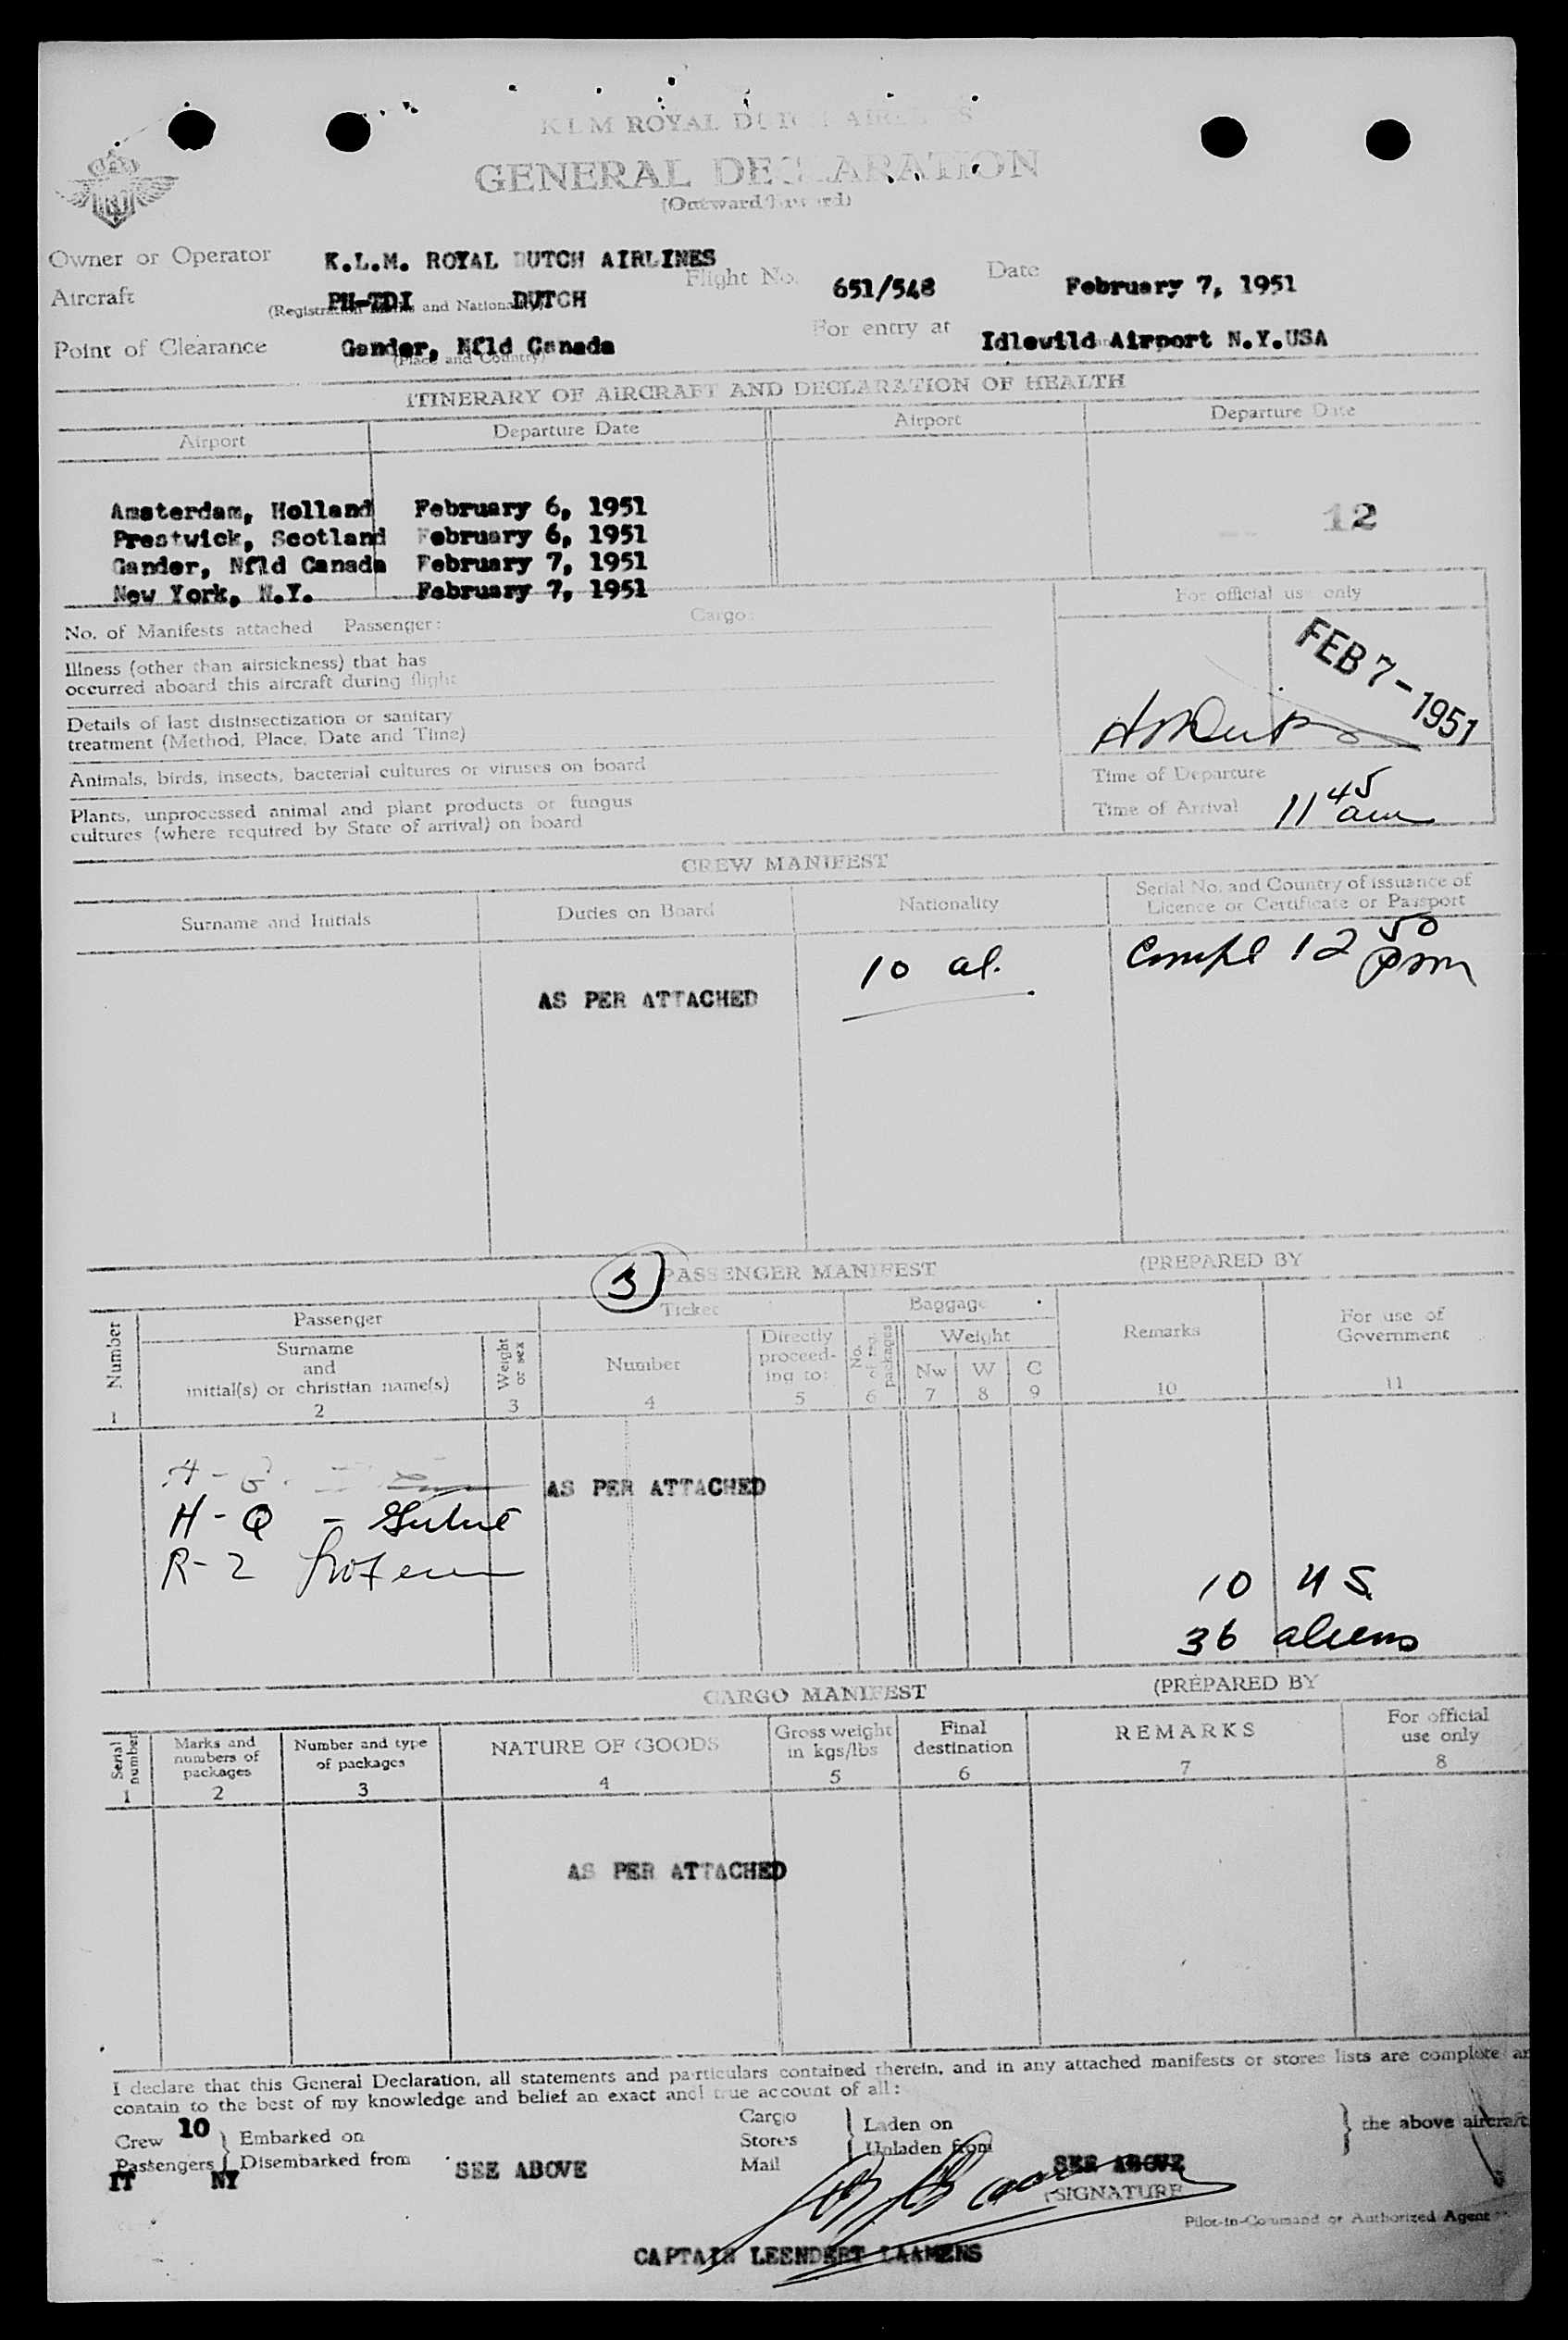 K L M ROYAL DUTCH AIRLINES
GENERAL DECLARATION
(Outward/Inward)
Owner or Operator K.L.M. ROYAL DUTCH AIRLINES Flight No. 651/548 Date February 7, 1951
Aircraft PH-TDI DUTCH
(Registration Marks and Nationality)
Point of Clearance Gander, Nfld Canada For entry at Idlewild Airport N.Y.USA
(Place and Country)
ITINERARY OF AIRCRAFT AND DECLARATION OF HEALTH
Airport Departure Date Airport Departure Date
Amsterdam, Holland February 6, 1951 12
Prestwick, Scotland February 6, 1951
Gander, Nfld Canada February 7, 1951
New York, N.Y. February 7, 1951
For official use only
No. of Manifests attached Passenger: Cargo:
FEB 7-1951
Illness (other than airsickness) that has
occurred aboard this aircraft during flight
Details of last disinsectization or sanitary
treatment (Method, Place, Date and Time)
Animals, birds, insects, bacterial cultures or viruses on board
Time of Departure
Plants, unprocessed animal and plant products or fungus
cultures (where required by State of arrival) on board
Time of Arrival 11 45 am
CREW MANIFEST
Surname and Initials Duties on Board Nationality Serial No. and Country of issuance of
Licence or Certificate or Passport
10 al. Compl 12 50 pm
AS PER ATTACHED
3 PASSENGER MANIFEST (PREPARED BY
Number Passenger Ticket Baggage Remarks For use of
Government
Surname
and
initial(s) or christian name(s)
Weight
or sex
Number Directly
proceed-
ing to:
No.
of
packages
Weight
Nw W C
1 2 3 4 5 6 7 8 9 10 11
AS PER ATTACHED
H-Q -
R-2
10 US.
36 aliens
CARGO MANIFEST (PREPARED BY
Serial
number
Marks and
numbers of
packages
Number and type
of packages
NATURE OF GOODS
Gross weight
in kgs/lbs
Final
destination
REMARKS
For official
use only
1 2 3 4 5 6 7 8
AS PER ATTACHED
I declare that this General Declaration, all statements and particulars contained therein, and in any attached manifests or stores lists are complete
contain to the best of my knowledge and belief an exact and true account of all:
Crew 10 Embarked on
Passengers Disembarked from SEE ABOVE
IT NY
Cargo
Stores
Mail
Laden on
Unladen from SEE ABOVE
the above aircraft
(SIGNATURE
Pilot-in-Command or Authorized Agent
CAPTAIN LEENDERT LAAMENS